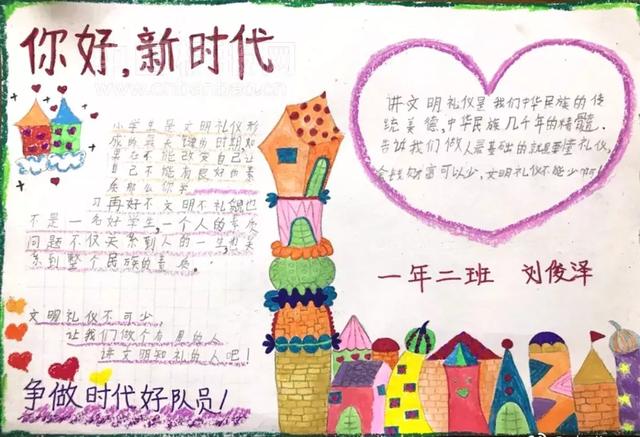 你好,新时代
小学生是文明礼仪形
成的最关键的时期如
果在不能改变自己让
自己不能有良好的素
质那么你学
习再好不文明不礼貌也
不是一名好学生,一个人的素质
问题不仅关系到人的一生也关
系到整个民族的素质。
文明礼仪不可少,
让我们做个有的人
讲文明知礼的人吧!
争做时代好队员!
讲文明礼仪是我们中华民族的传
统美德,中华民族几千年的精髓。
告诉我们做人最基础的就是要懂礼仪,
金钱财富可以少,文明礼仪不能少啊!
一年二班 刘俊泽